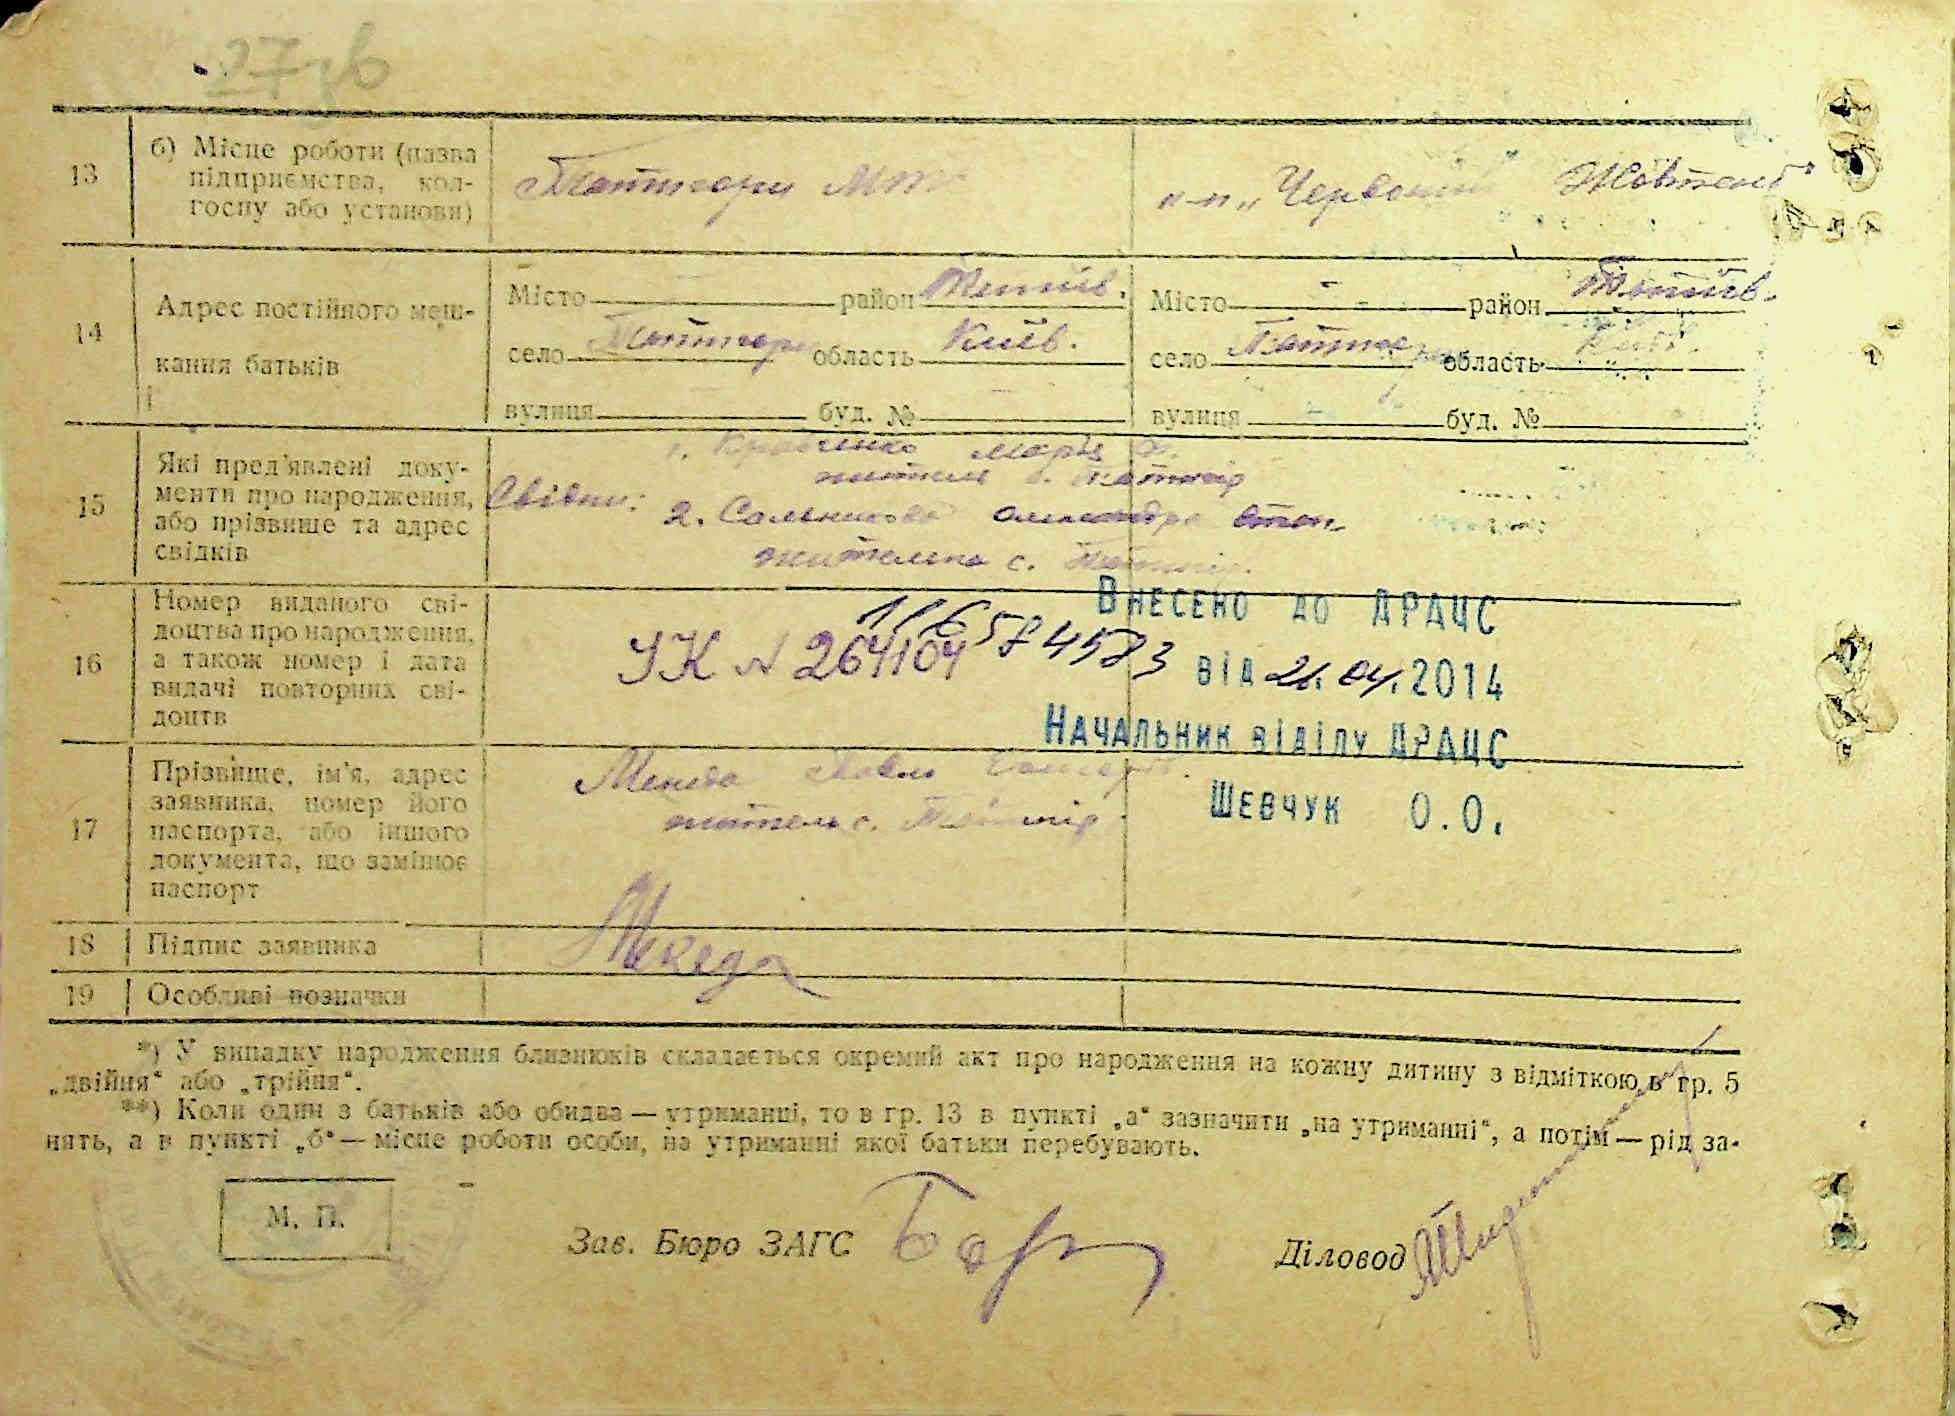 13
б) Місце роботи (назва
підприємства, кол-
госпу або установи)
к-п „Червоний Жовтень"
14
Адрес постійного меш-
кання батьків
Місто район Тетіїв.
село область Київ.
вулиця буд. №
Місто район Тетіїв.
село область Київ.
вулиця буд. №
15
Які пред'явлені доку-
менти про народження,
або прізвище та адрес
свідків
Свідки:
1. Кравченко Марія
житель с.
2. Сальникова Олександра
жителька с.
16
Номер виданого сві-
доцтва про народження,
а також номер і дата
видачі повторних сві-
доцтв
ІК № 264104
Внесено до ДРАЦС
від 21.04.2014
Начальник відділу ДРАЦС
Шевчук О.О.
17
Прізвище, ім'я, адрес
заявника, номер його
паспорта, або іншого
документа, що замінює
паспорт
Павло
житель с.
18
Підпис заявника
19
Особливі позначки
*) У випадку народження близнюків складається окремий акт про народження на кожну дитину з відміткою в гр. 5
„двійня" або „трійня".
**) Коли один з батьків або обидва — утриманці, то в гр. 13 в пункті „а" зазначити „на утриманні", а потім — рід за-
нять, а в пункті „б" — місце роботи особи, на утриманні якої батьки перебувають.
М. П.
Зав. Бюро ЗАГС
Діловод